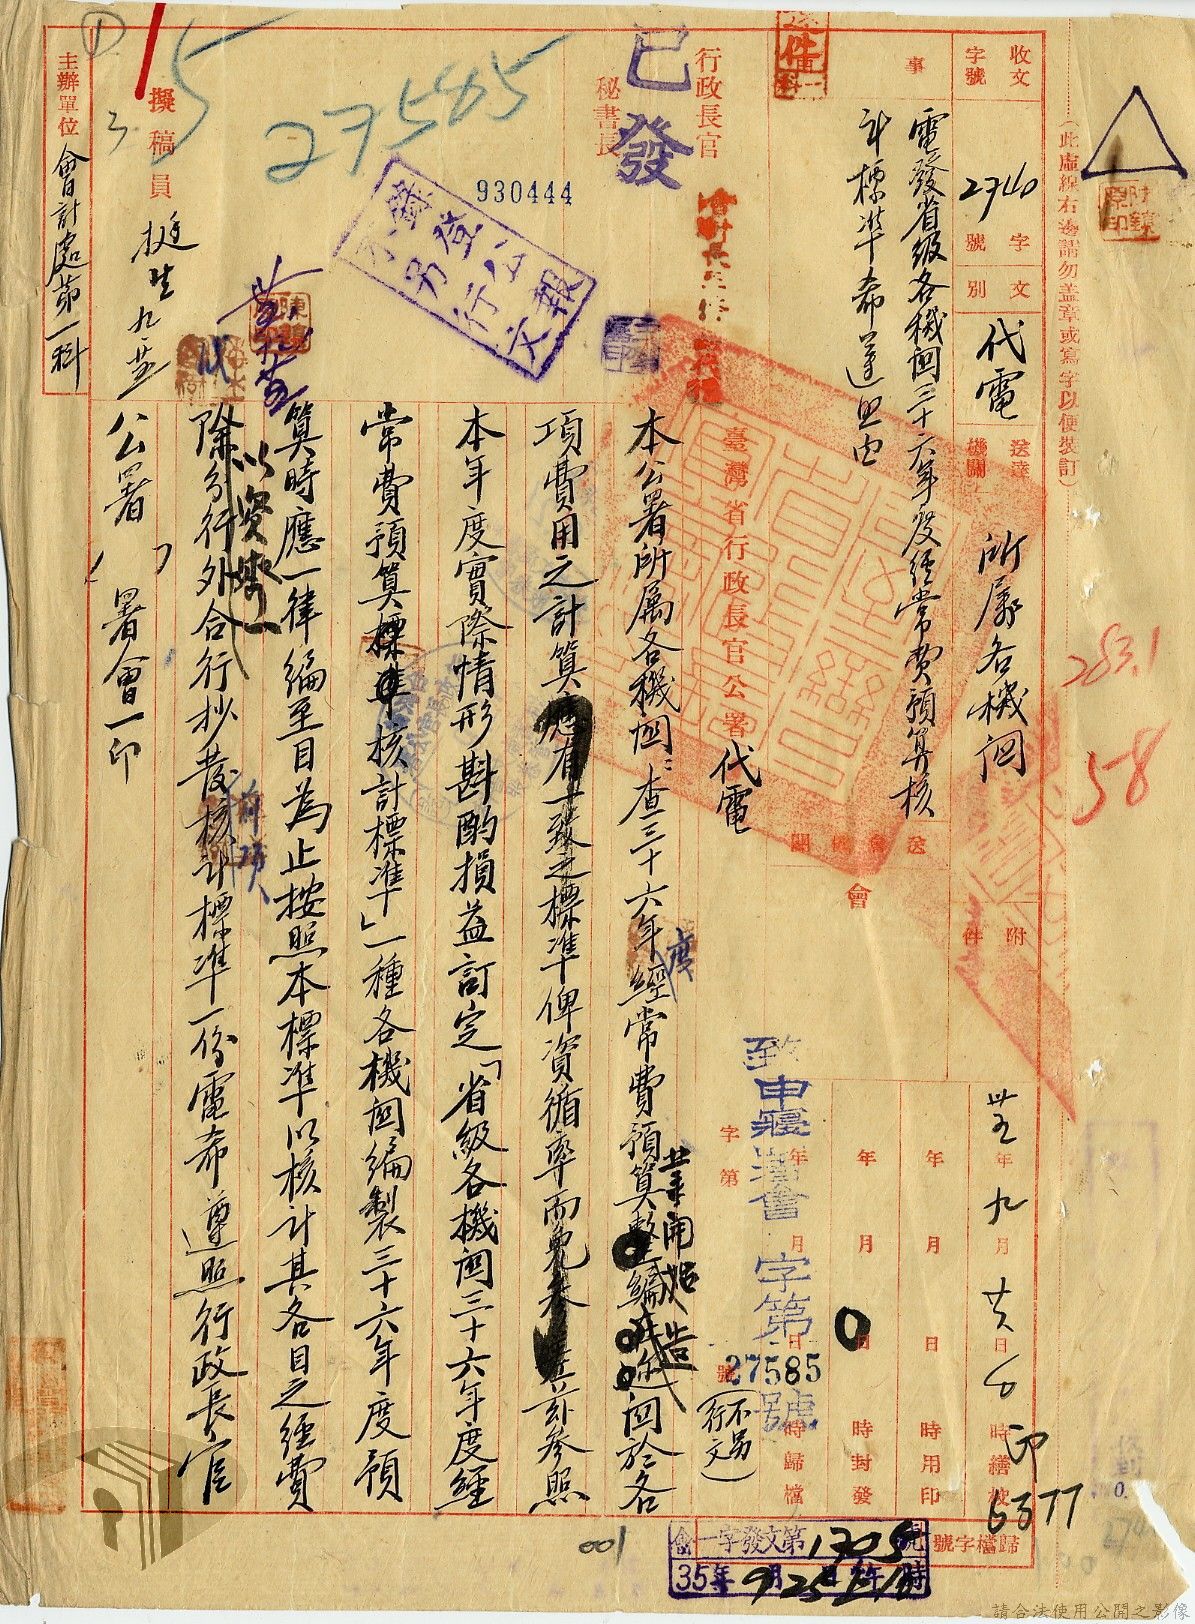 （此虛線右邊請勿蓋章或寫字以便裝訂）
收文
字號
2740
字
號
文
別
代電
送達
機關
所屬各機関
附
件
事
電發省級各機関三十六年度經常費預算核
計標準希遵照由
送會機關
會
卅五年九月廿六日
時繕校
印
6377
年月日時用印
年月日時封發
年月日時歸檔
字第
號
致申寢
會
字第
27585
號
（不另行文）
歸檔字號
會一字發文第1705號
35年9月25日
時
行政長官
秘書長
已發
930444
27585
登公報
不另行文
臺灣省行政長官公署代電
本公署所屬各機関：查三十六年度經常費預算業開始編造関於各
項費用之計算應有一致之標準俾資循率
茲參照
本年度實際情形斟酌損益訂定「省級各機関三十六年度經
常費預算核計標準」一種各機関編製三十六年度預
算時應一律編至目為止按照本標準以核計其各目之經費
以資
一
除分行外合行抄發
核計標準一份電希遵照行政長官
公署（
）署會一印
擬稿員
挺生
主辦單位
會計處第一科
283.1
58
001
①
5
請合法使用公開之影像